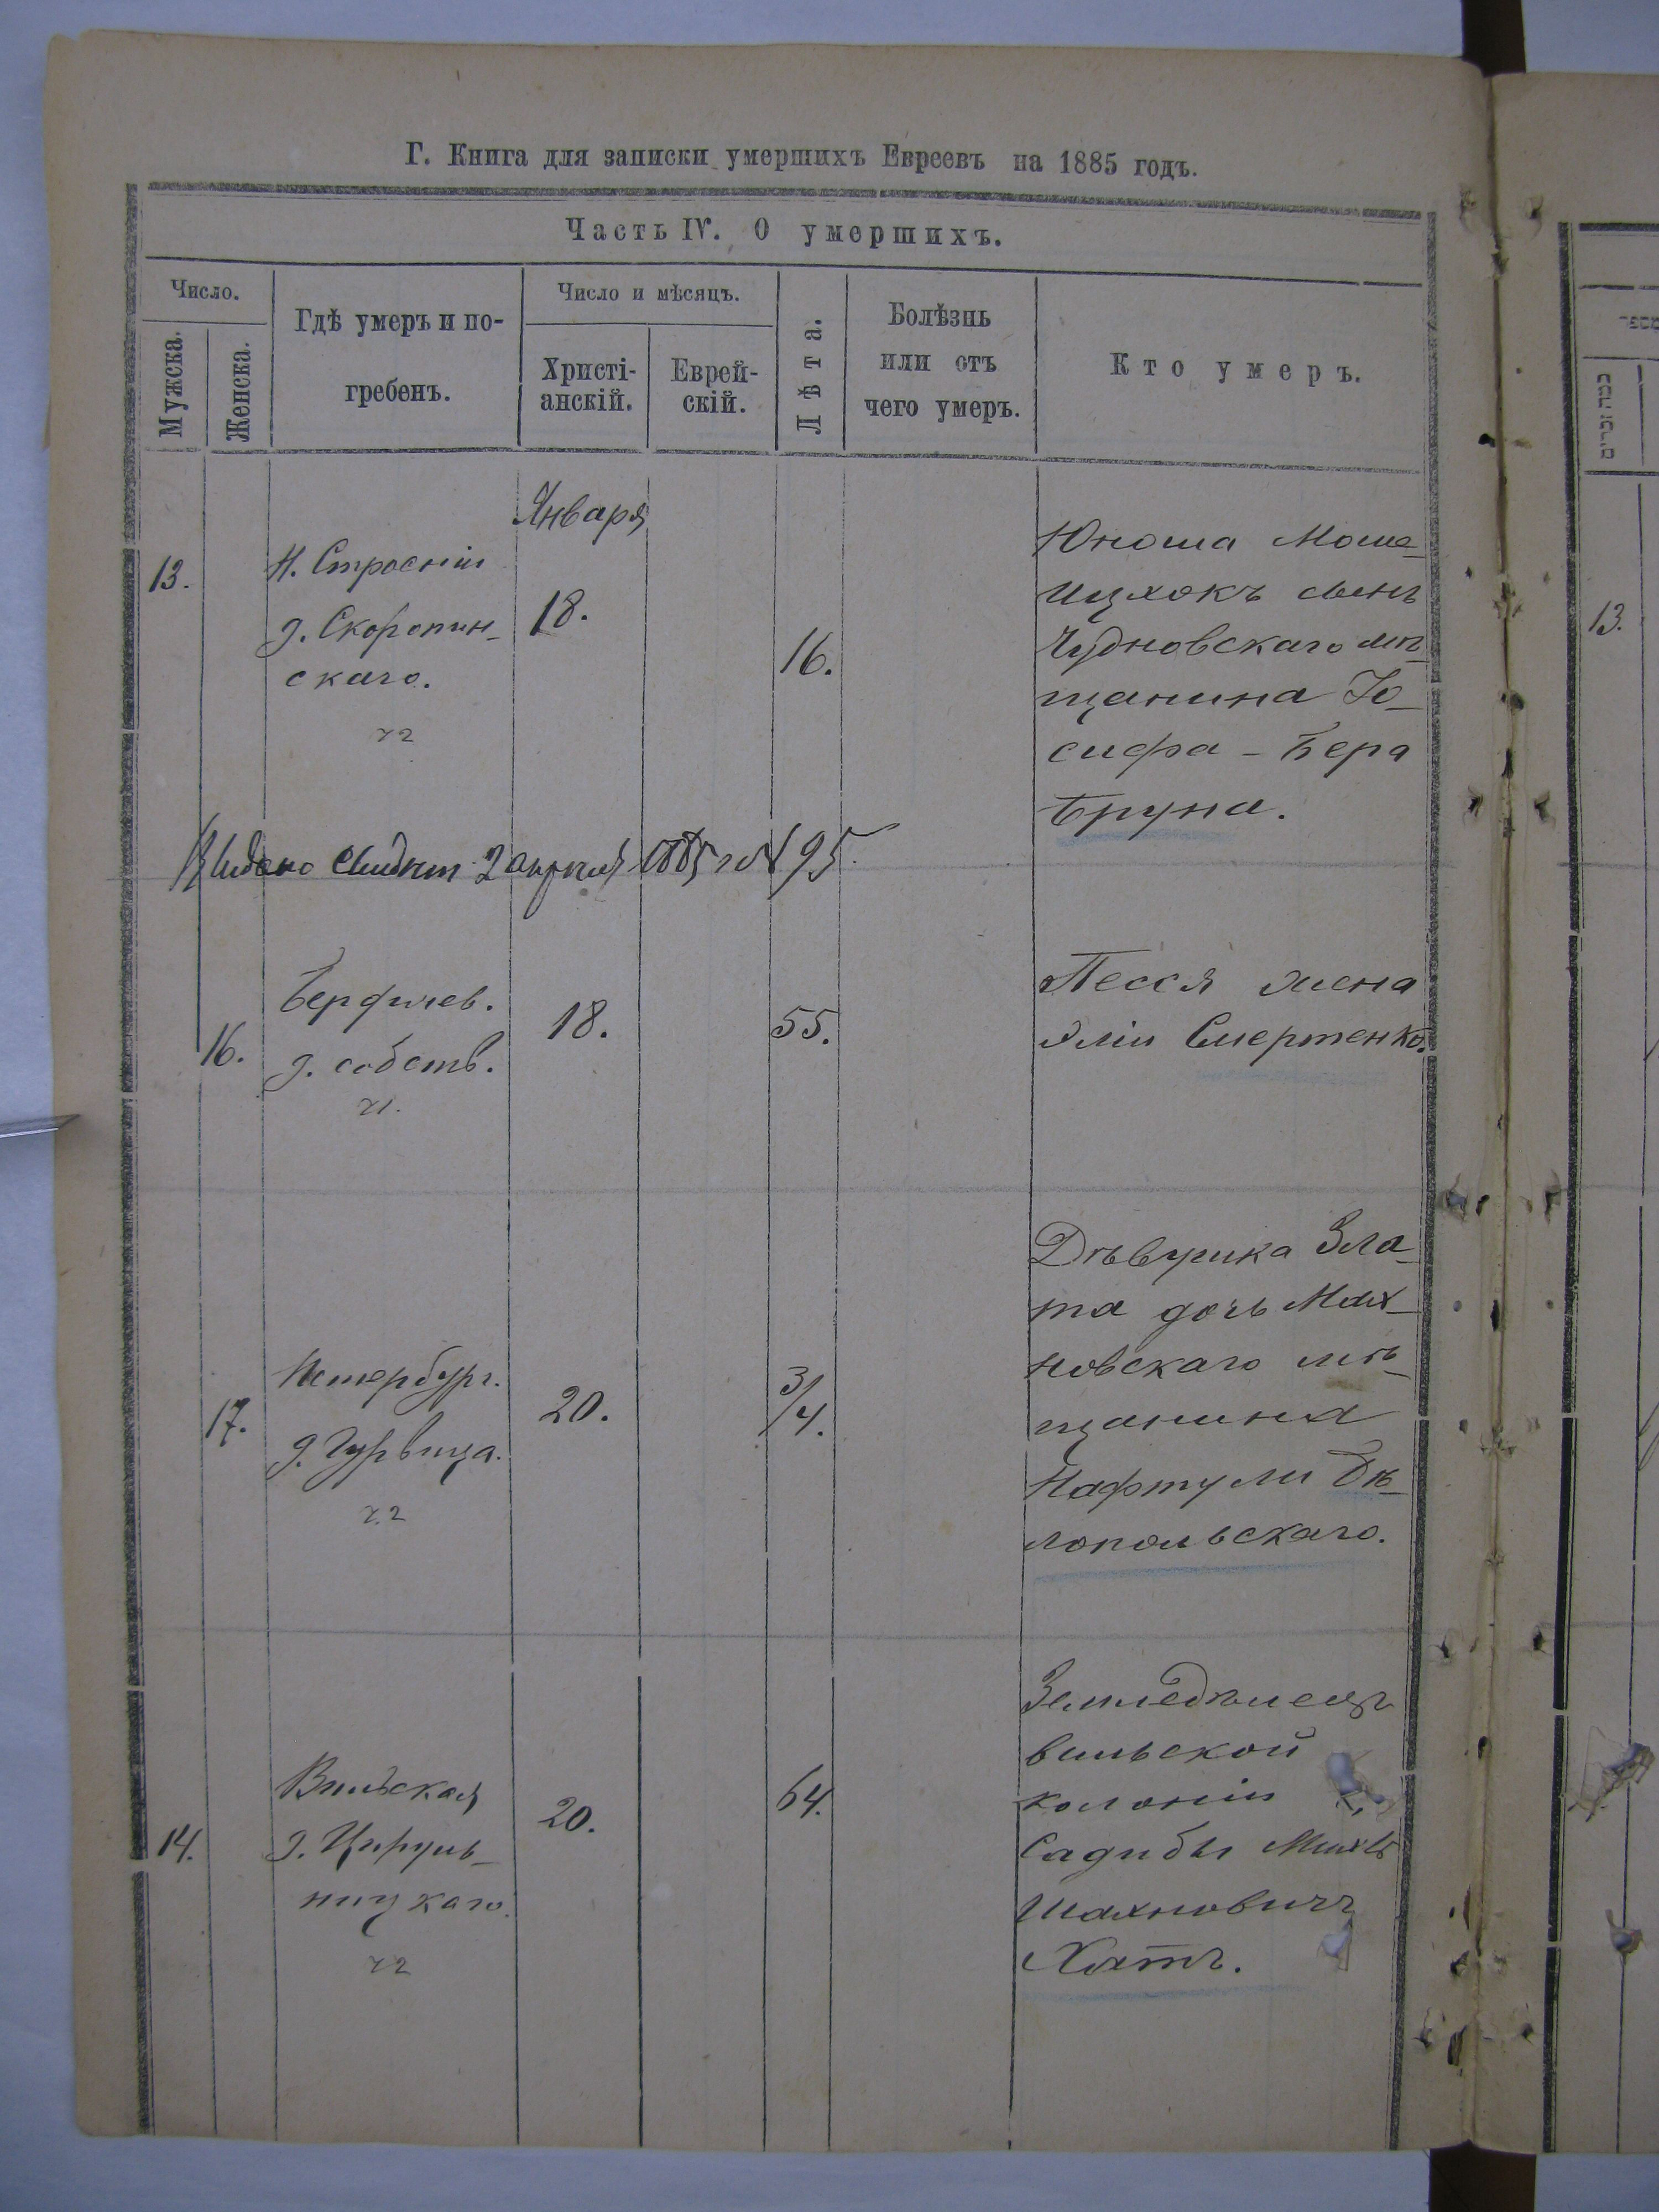 Г. Книга для записки умершихъ Евреевъ на 1885 годъ.
Часть IV. О умершихъ.
Число.
Мужска.
Женска.
Гдѣ умеръ и по-
гребенъ.
Число и мѣсяцъ.
Христі-
анскій.
Еврей-
скій.
Лѣта.
Болѣзнь
или отъ
чего умеръ.
Кто умеръ.
Января
13.
Н. Строеніи
д. Скоропин-
скаго.
ч 2
18.
16.
Юноша Моше-
Ицхокъ сынъ
Чудновскаго мѣ-
щанина Іо-
сифа - Бера
Бруна.
Выдано 2 апреля 1885 95
16.
Бердичев.
д. собств.
ч 1.
18.
55.
Песся жена
Эліи Смертенко.
17.
Петербург.
д. Гурвица.
ч. 2
20.
3/4.
Дѣвушка Зла-
та дочь Мах-
новскаго мѣ-
щанина
Нафтули Бѣ-
лопольскаго.
14.
Вильская
д. Цируль-
ницкаго.
ч 2
20.
64.
Земледѣлецъ
вильской
колоніи
Садибы
Шахновичъ
Хатъ.
13.